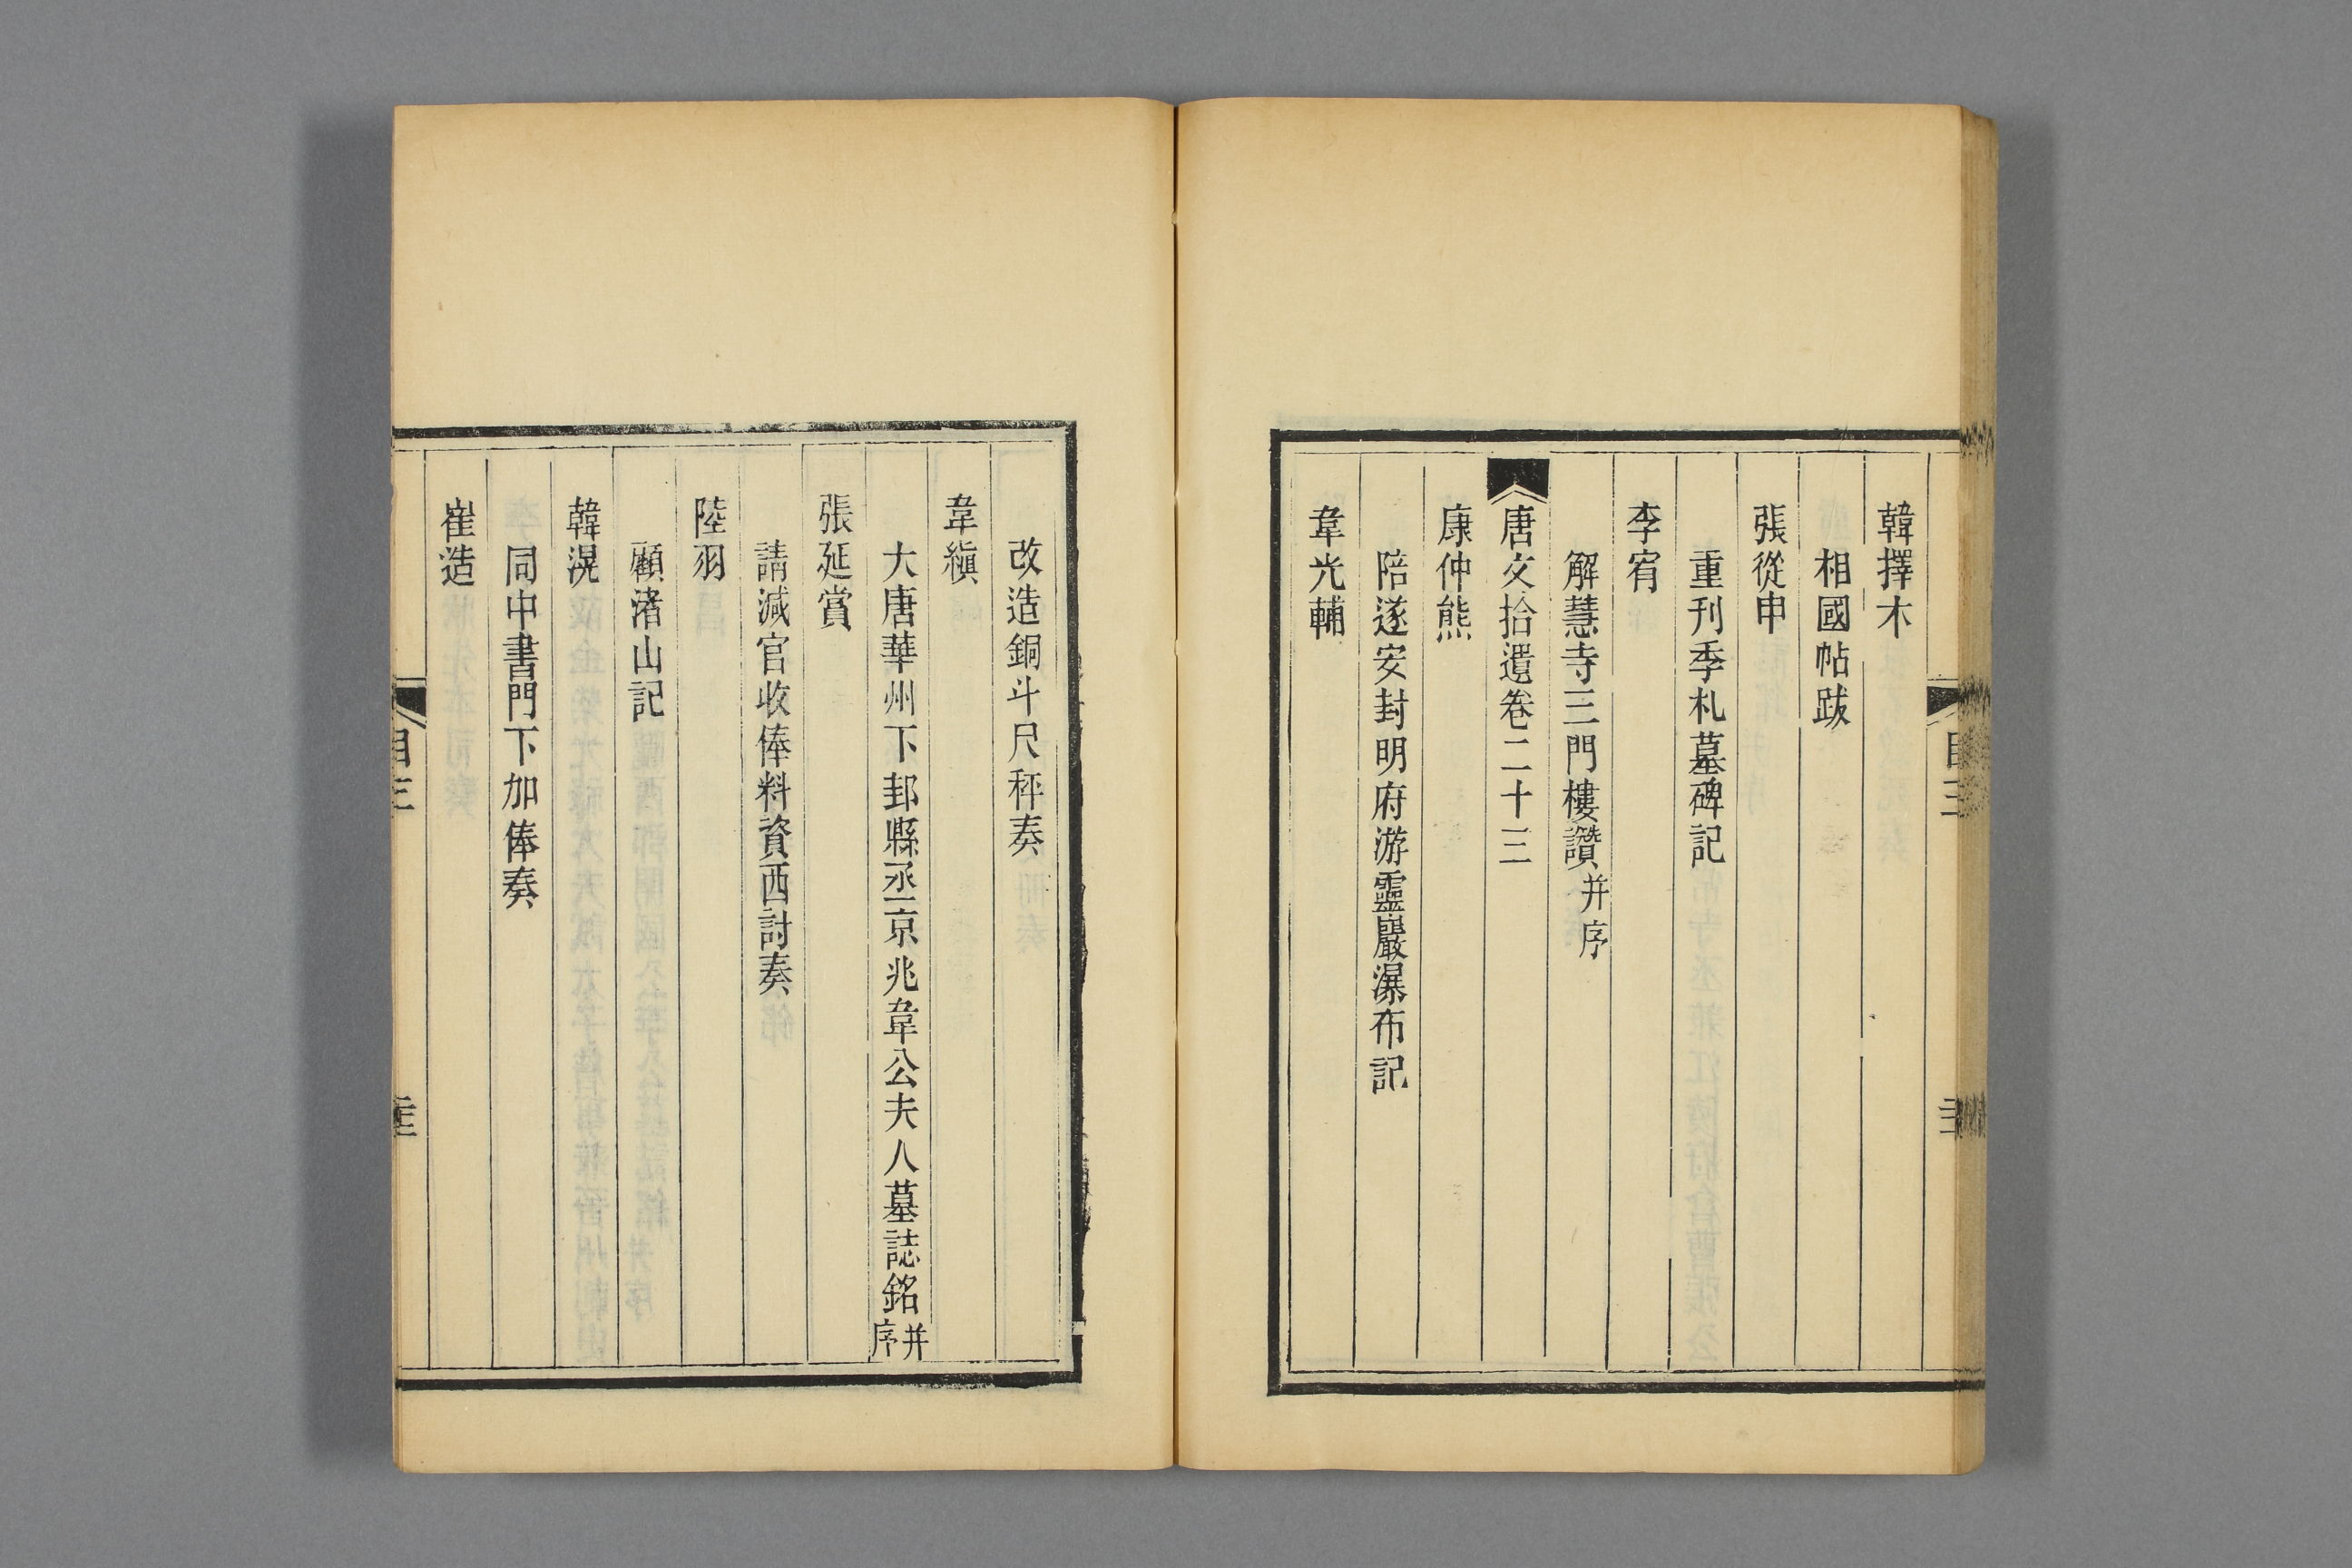 韓擇木
相國帖跋
張從申
重刊季札墓碑記
李宥
解慧寺三門樓讚并序
唐文拾遺卷二十三
康仲熊
陪遂安封明府游靈巖瀑布記
韋光輔
改造銅斗尺秤奏
韋縝
大唐華州下邽縣丞京兆韋公夫人墓誌銘并序
張延賞
請減官收俸料資西討奏
陸羽
顧渚山記
韓滉
同中書門下加俸奏
崔造
目三